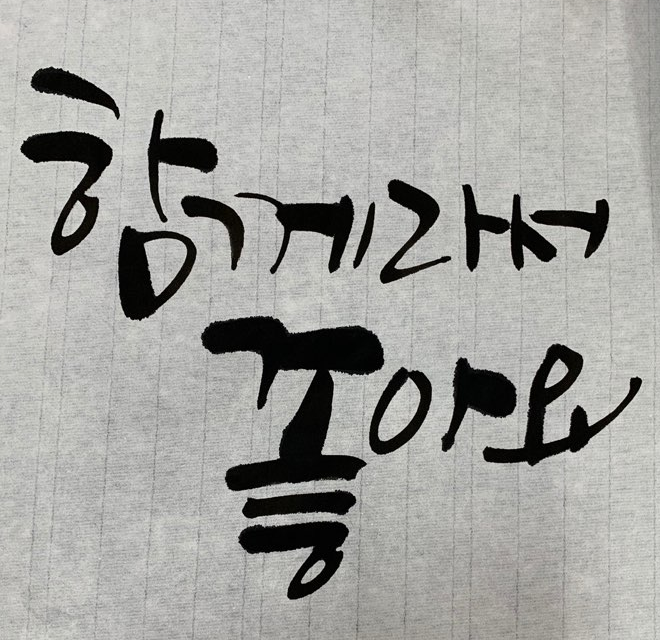 함께라서
좋아요